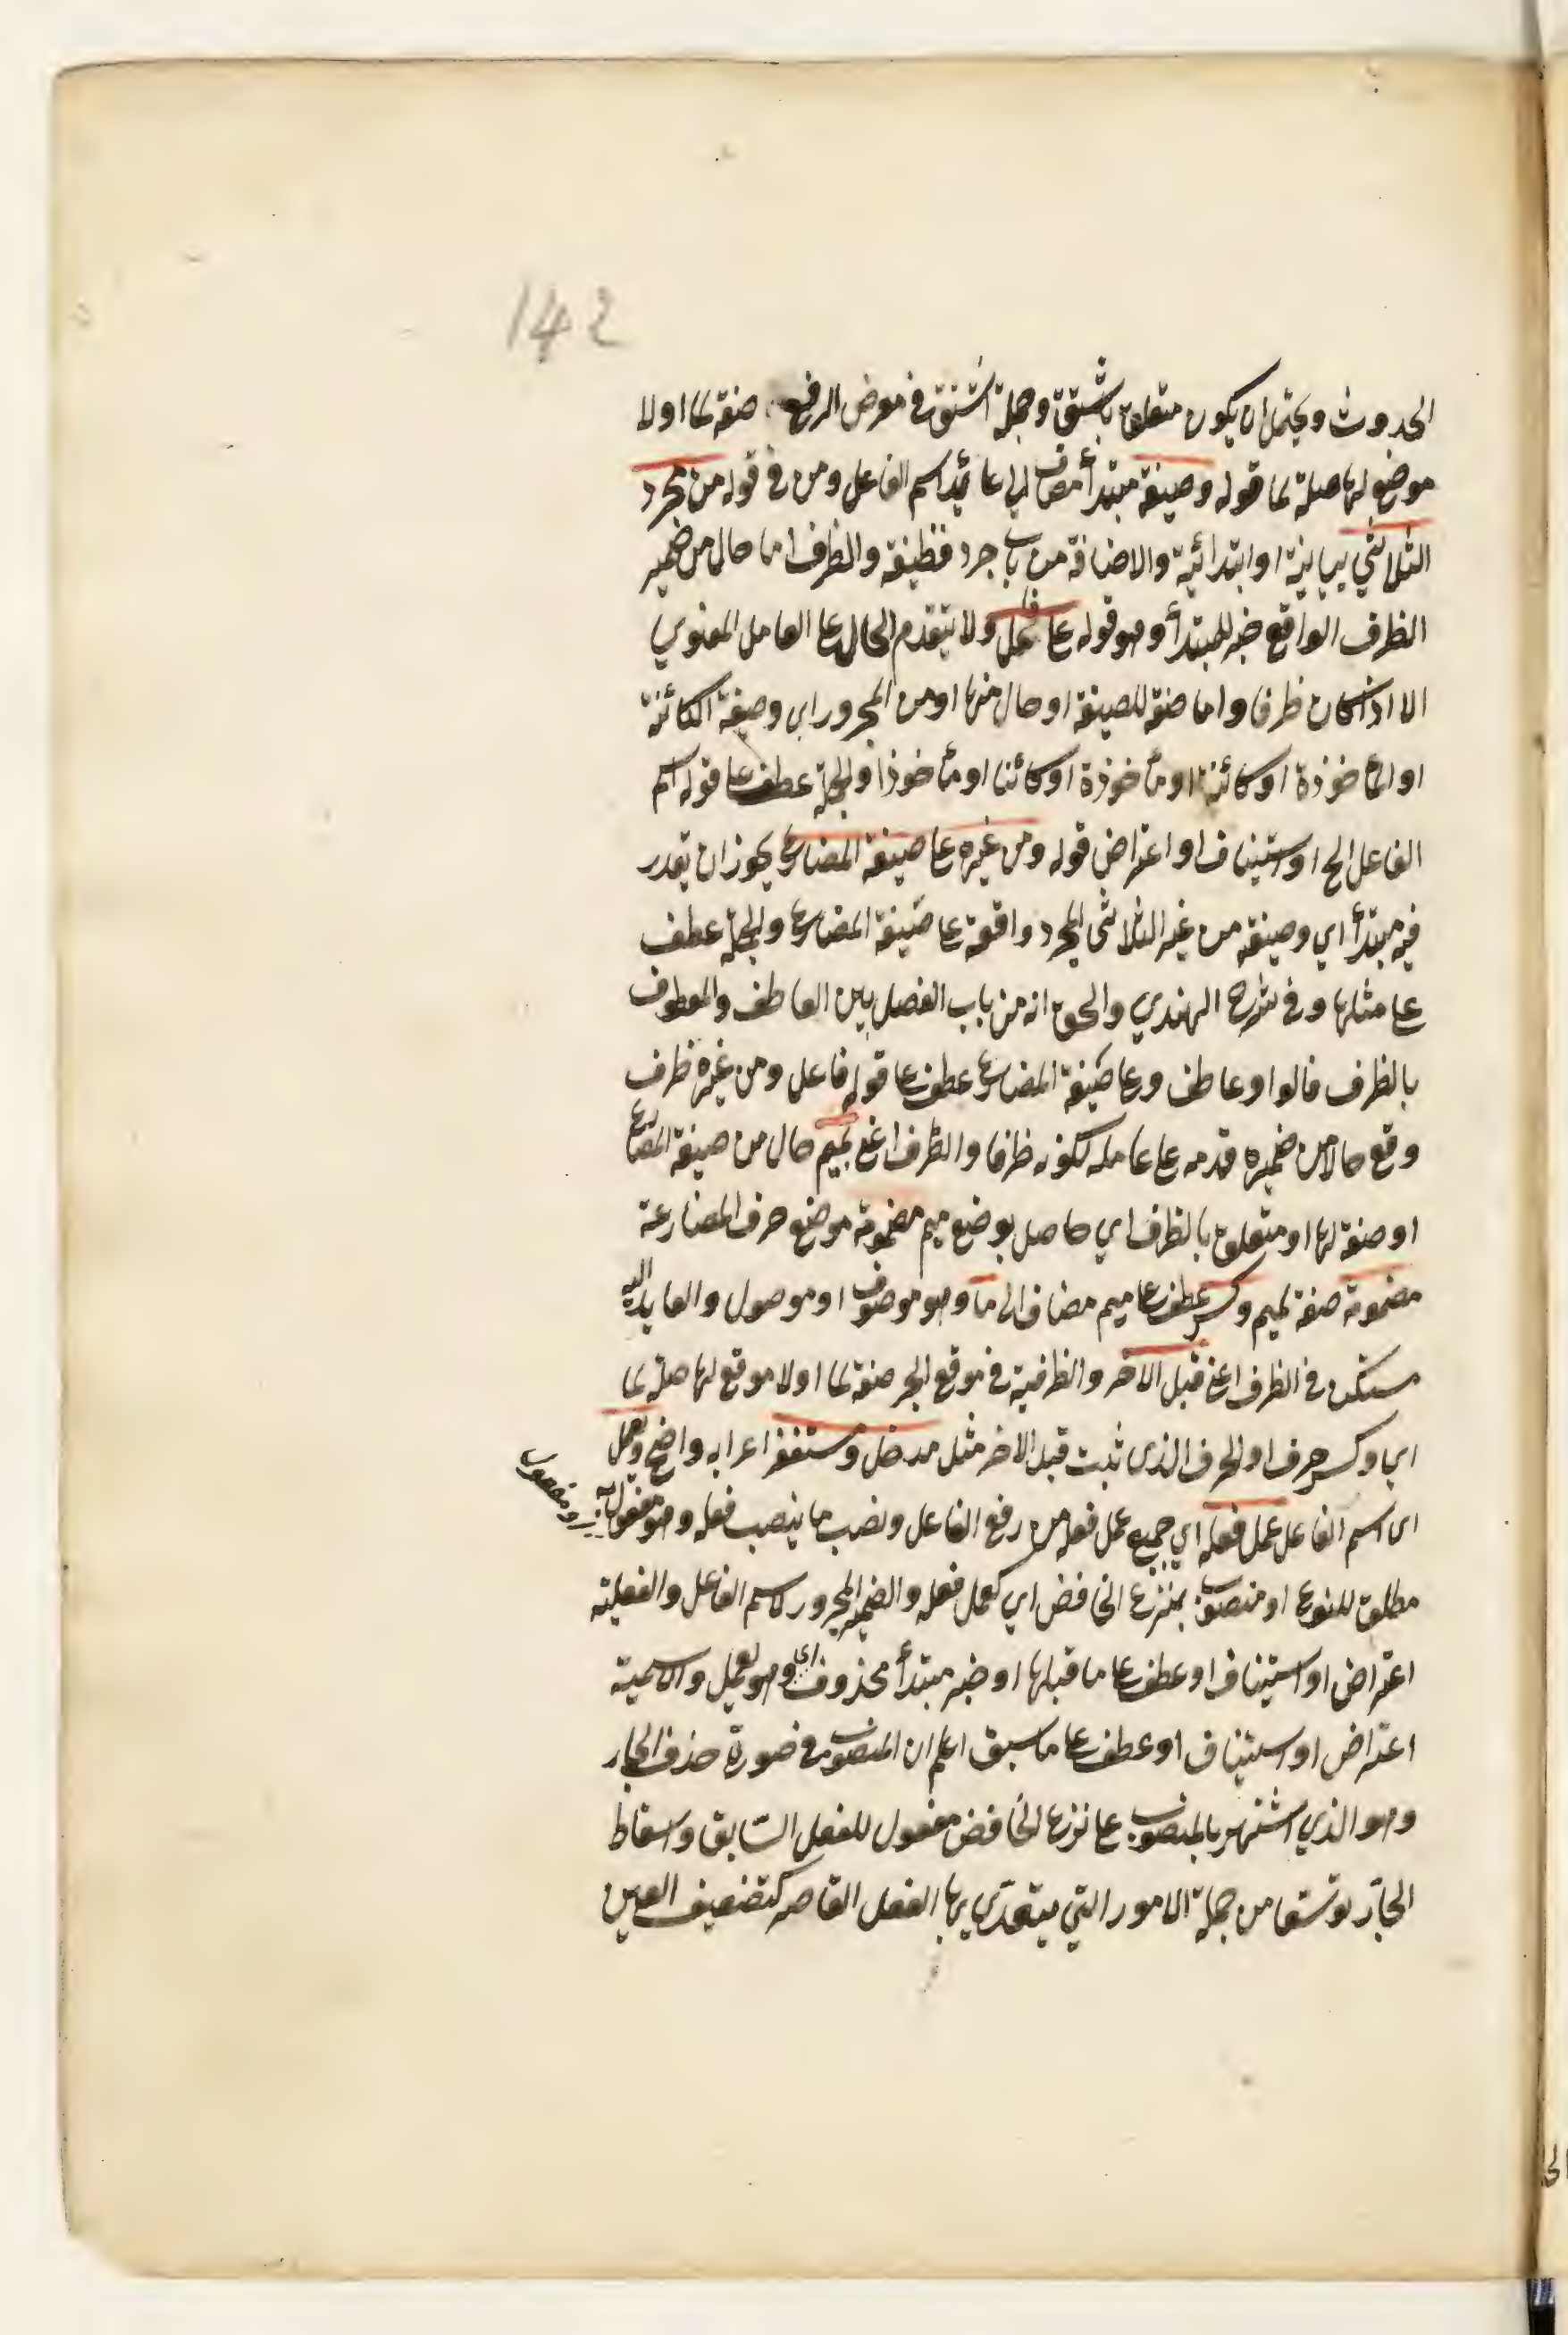 142
الحدوث ويحتمل ان يكون متعلق باشتق وجملة اشتق في موض الرفع صفة لما او لا
موضع لها صلة لما قوله وصيغة مبتدأ مضاف الى عائد اسم الفاعل ومن في قوله من مجرد
الثلاثي بيانية او ابتدائية والاضافة من باب جرد قطيفة والظرف اما حال من ضمير
الظرف الواقع خبر للمبتدأ وهو قوله على فاعل ولا يتقدم الحال على العامل المعنوي
الا اذا كان ظرفا واما صفة للصيغة او حال منها او من المجرور اي وصيغة الكائنة
او المأخوذة او كائنة او مأخوذة او كائنا او مأخوذا والجملة عطف على قوله اسم
الفاعل الخ او استيناف او اعتراض قوله ومن غيره على صيغة المضارع يجوز ان يقدر
فيه مبتدأ اي وصيغة من غير الثلاثي المجرد واقعة على صيغة المضارع والجملة عطف
على مثلها وفي شرح الهندي والحق انه من باب الفصل بين العاطف والمعطوف
بالظرف فالواو عاطف وعلى صيغة المضارع عطف على قوله فاعل ومن غيره ظرف
وقع حالا من ضميره قدمه على عامله لكونه ظرفا والظرف اعني بميم حال من صيغة المضارع
او صفة لها او متعلق بالظرف اي حاصل بوضع ميم مضمومة موضع حرف المضارعة
مضمومة صفة لميم وكسر عطف على ميم مضاف الى ما وهو موصوف او موصول والعايد اليه
مستكن في الظرف اعني قبل الاخر والظرفية في موقع الجر صفة لما او لا موقع لها صلة لما
اي وكسر حرف او الحرف الذي ثبت قبل الاخر مثل مدخل ومستغفر اعرابه واضح ويعمل
اى اسم الفاعل عمل فعله اي جميع عمل فعله من رفع الفاعل ونصب ما ينصب فعله وهو مفعول به
ومفعول
مطلق للنوع او منصوب بنزع الخافض اي كعمل فعله والضمير المجرور لاسم الفاعل والفعلية
اعتراض او استيناف او عطف على ما قبلها او خبر مبتدأ محذوف اي وهو يعمل والاسمية
اعتراض او استيناف او عطف على ما سبق اعلم ان المنصوب في صورة حذف الجار
وهو الذي اشتهر بالمنصوب على نزع الخافض مفعول للفعل السّابق واسقاط
الجارّ توسّعا من جملة الامور التي يتعدّى بها الفعل القاصر كتضعيف العين